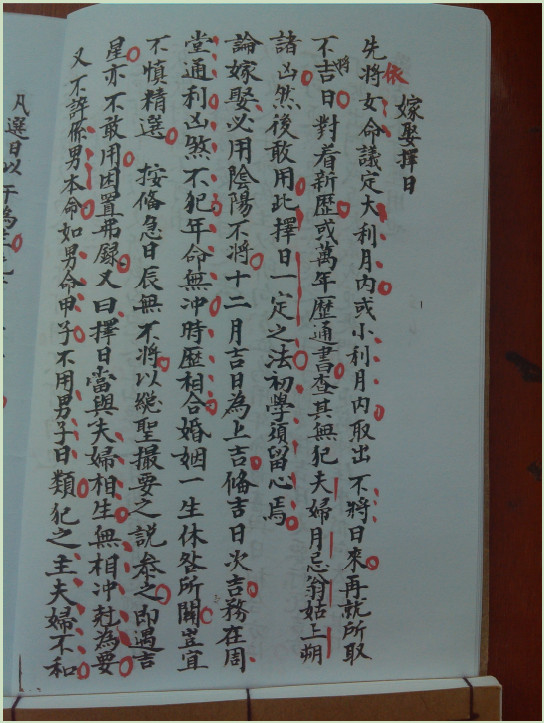 嫁娶擇日
先將依女命議定大利月內或小利月內取出不將日來再就所取
不將吉日對着新歷或萬年歷通書查其無犯夫婦月忌翁姑上朔
諸凶然後敢用此擇日一定之法初學須留心焉
論嫁娶必用陰陽不將十二月吉日為上吉俻吉日次吉務在周
堂通利凶煞不犯年命無冲時歷相合婚姻一生休咎所關豈宜
不慎精選 按俻急日辰無不將以緃聖撮要之說叅之即遇吉
星亦不敢用因置弗録又曰擇日當與夫婦相生無相冲尅為要
又不許係男本命如男命甲子不用男子日類犯之主夫婦不和
凡選日以干為